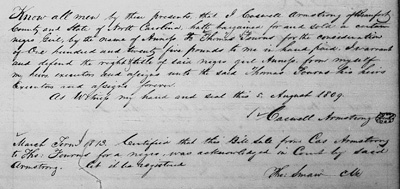 Know all men by these presents that I Caswell Armstrong of Beaufort
County and State of North Carolina hath bargained for and sold a certain
negro Girl, by the name of to Thomas for the consideration
of One hundred and twenty five pounds to me in hand paid. I warrant
and defend the right & title of said negro girl from myself
my heirs executors and assigns unto the said Thomas his heirs
Executors and assigns forever.
As Witness my hand and seal this 5 August 1809.
Caswell Armstrong
March Term 1813. Certified that this Bill Sale from Cas Armstrong
to Thos: for a negro, was acknowledged in Court by said
Armstrong. Let it be registered
Tho Smaw Clk